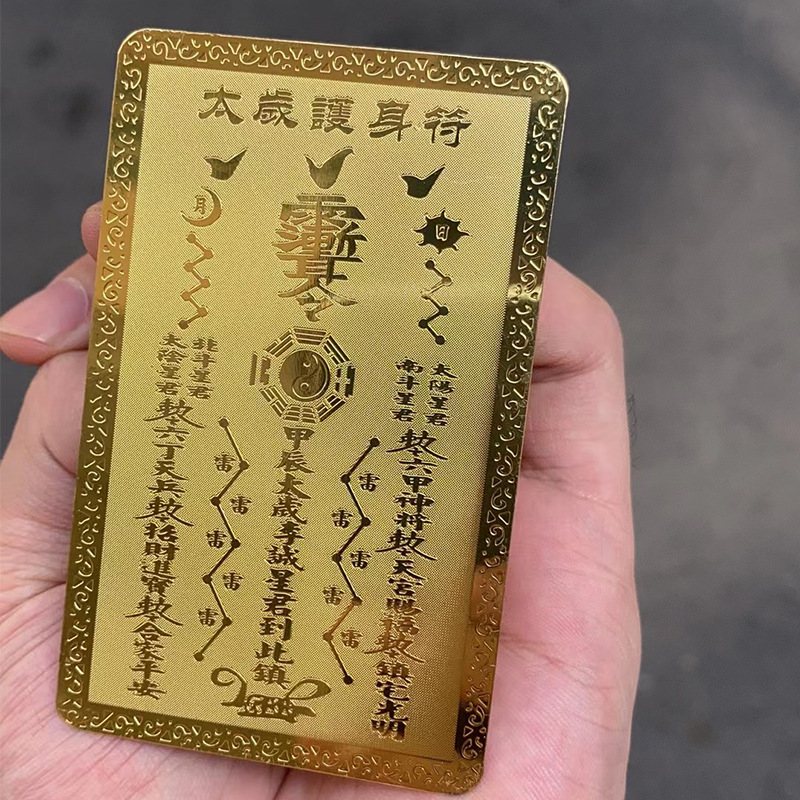 太歲護身符
日
太陽星君
南斗星君
敕六甲神將敕天官賜福敕鎮宅光明
雷
雷
雷
雷
雷
令
甲辰太歲李誠星君到此鎮
月
北斗星君
太陰星君
敕六丁天兵敕招財進寶敕合家平安
雷
雷
雷
雷
雷